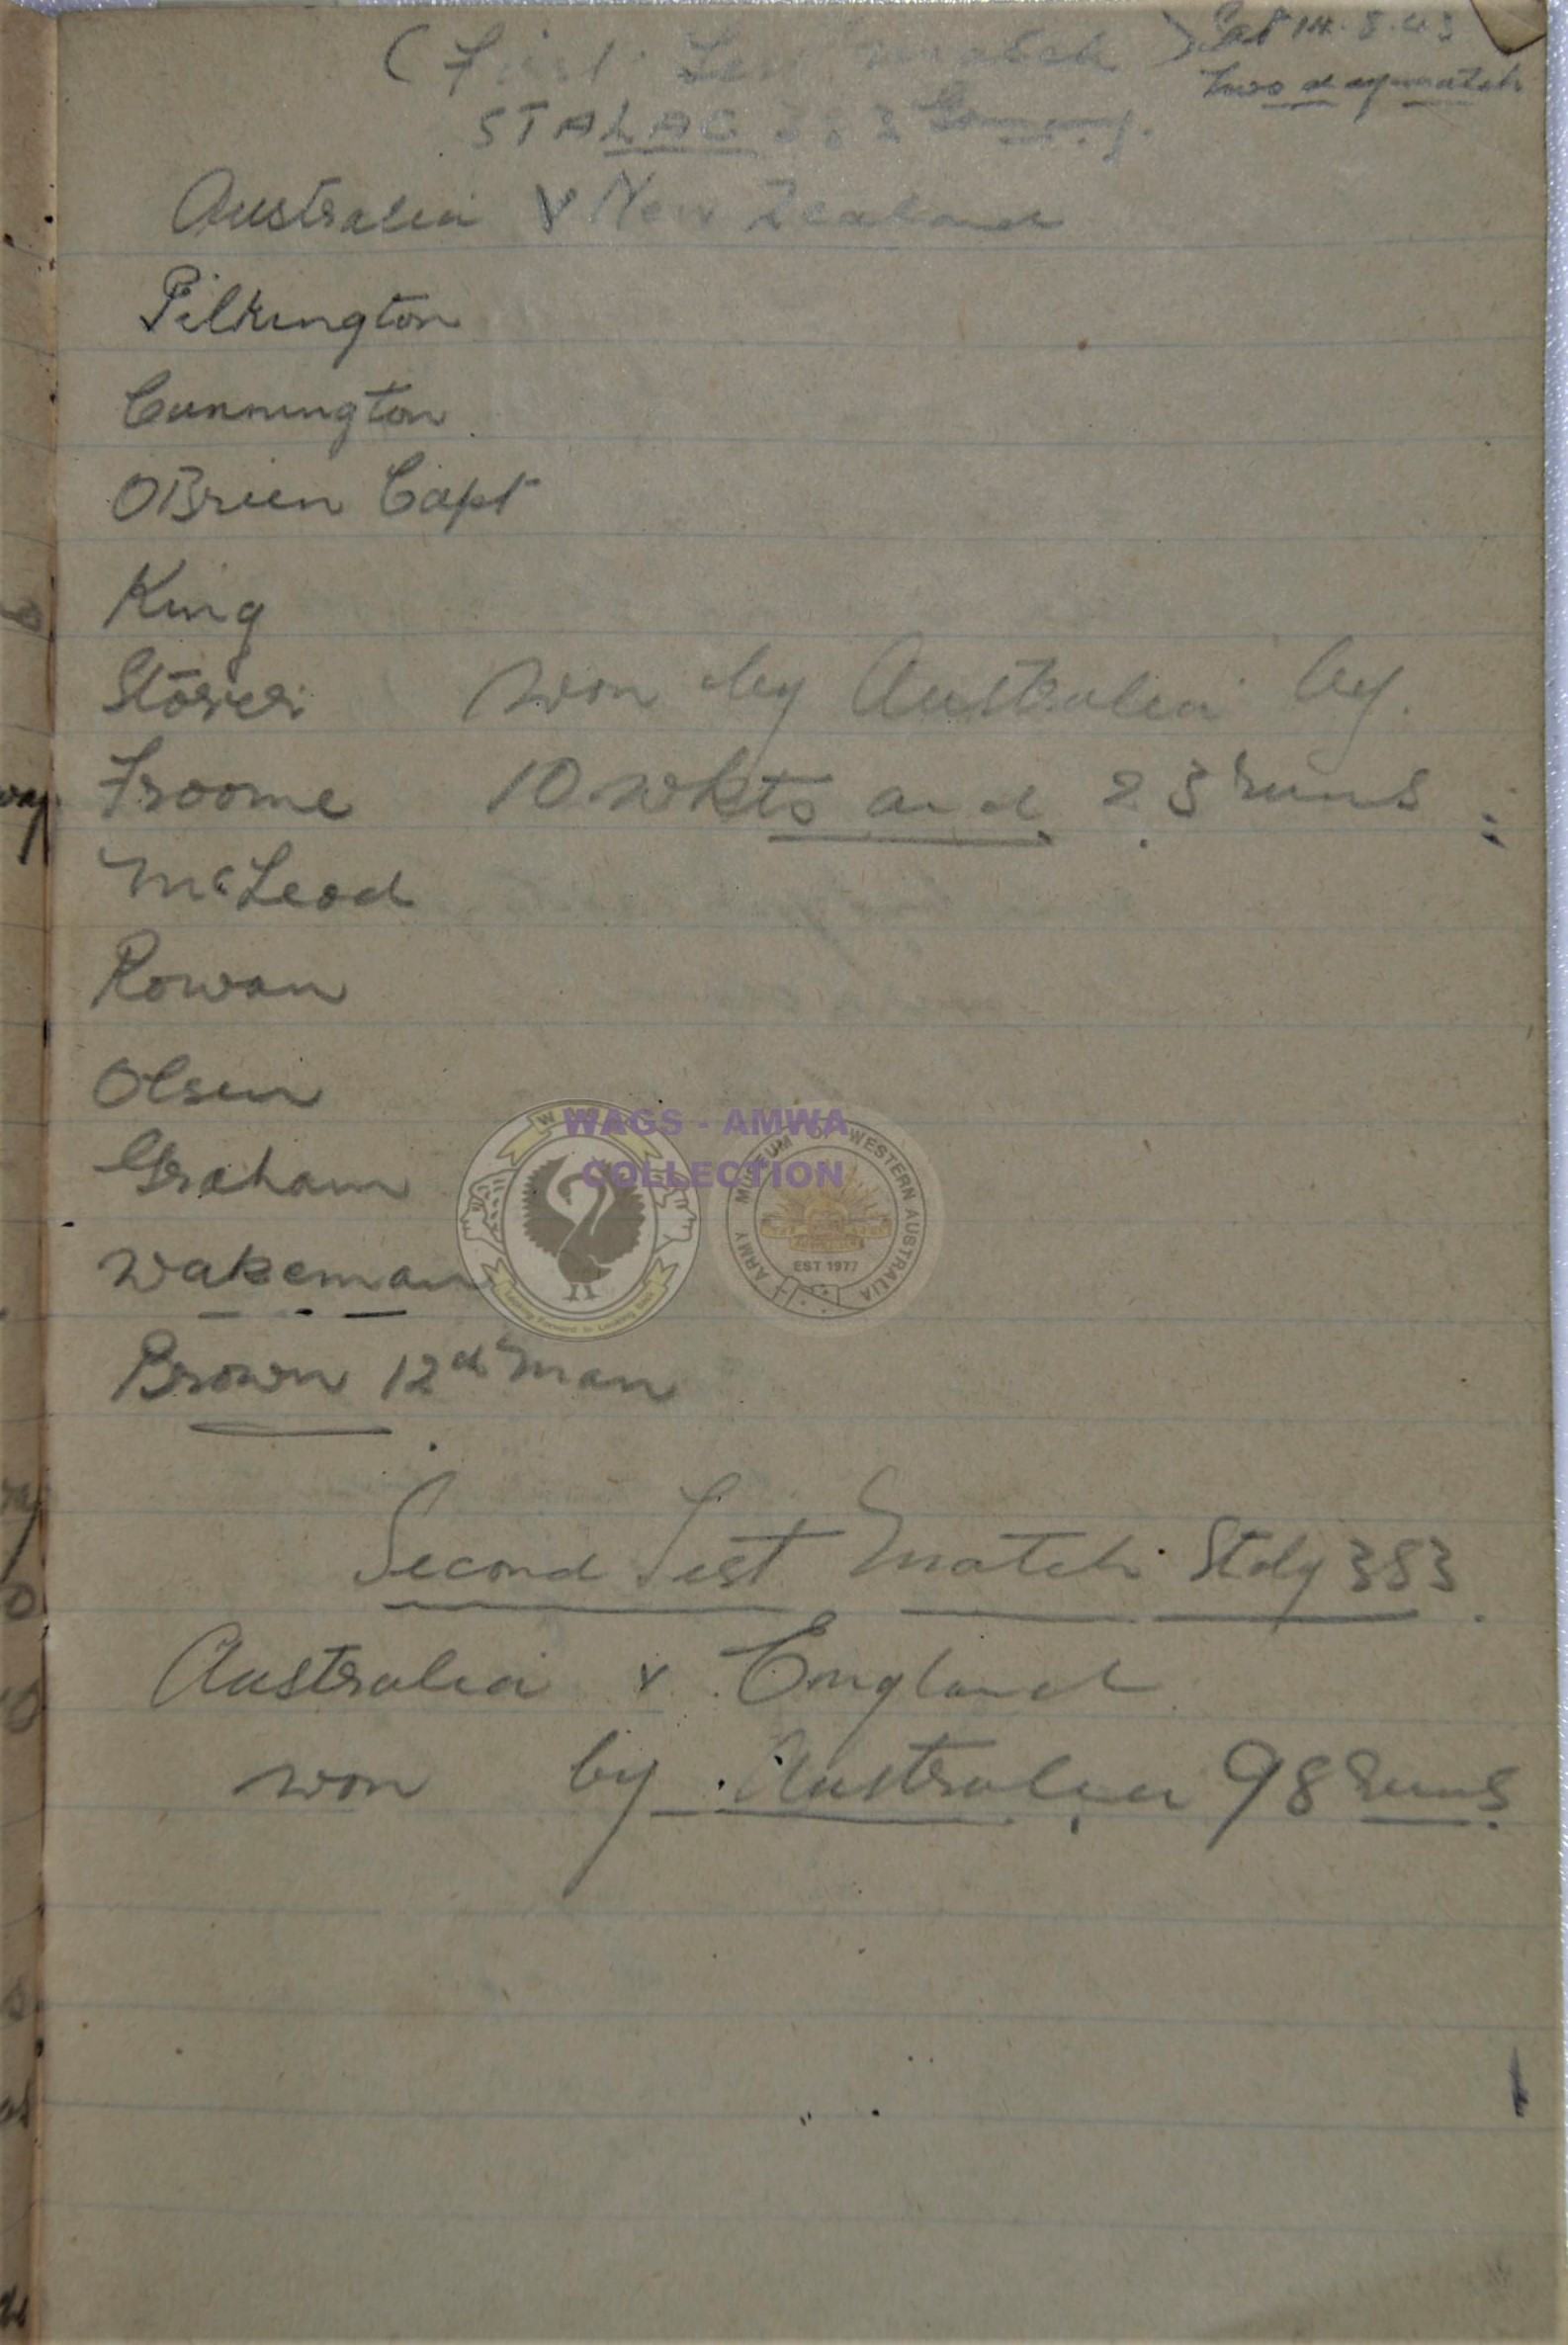 (First Test match) Sat 14.8.43
Two day match
STALAG 383 Germany.
Australia V New Zealand
Pilkington
Cunnington
OBrien Capt
King
Storer won by Australia by.
Froome 10 wkts and 23 runs
McLeod
Rowan
Olsen
Graham
Wakeman
Brown 12th man
Second Test Match Stalg 383.
Australia v England
won by Australia 98 runs.
WAGS - AMWA
COLLECTION
ARMY MUSEUM OF WESTERN AUSTRALIA
EST 1977